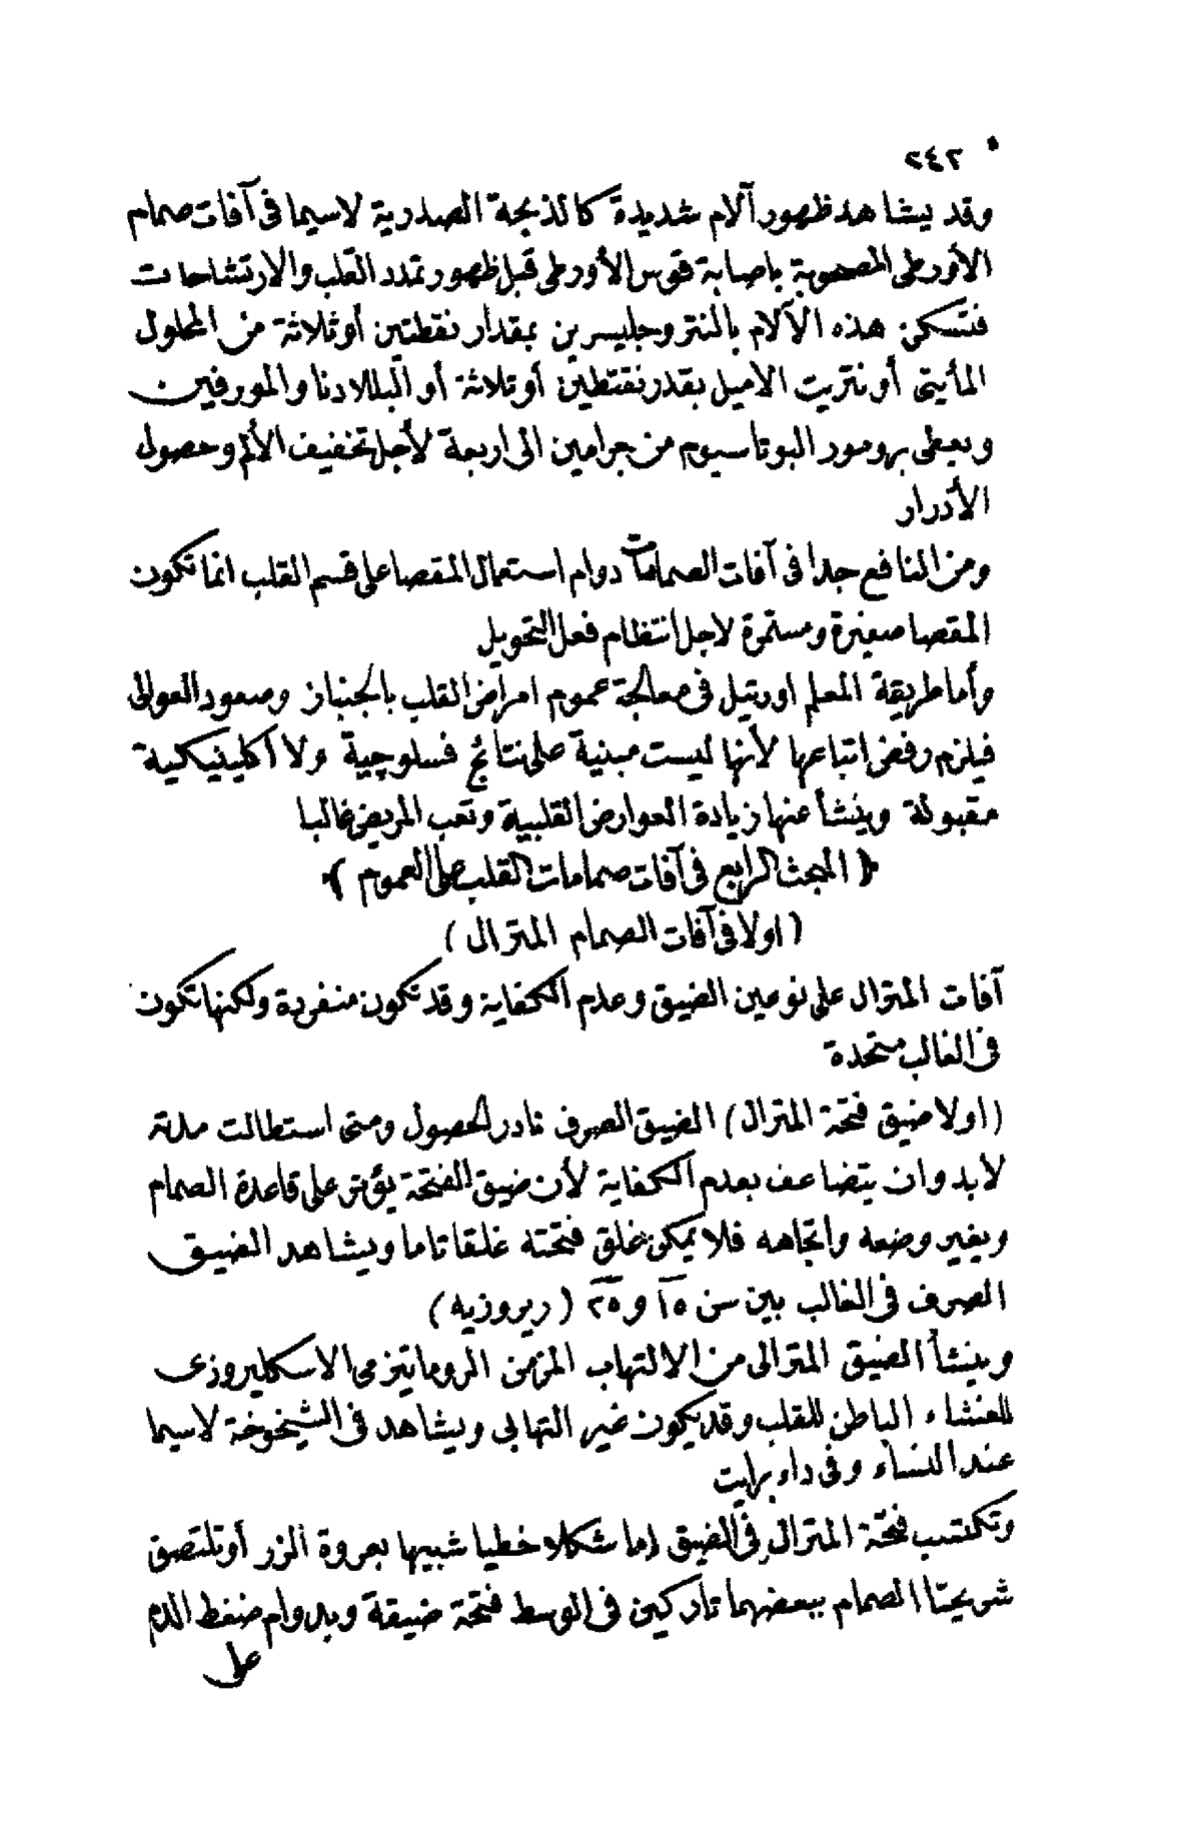 ٢٤٢
وقد يشاهد ظهور آلام شديدة كالذبحة الصدرية لاسيما فى آفات صمام
الأورطى المصحوبة باصابة قوس الأورطى قبل ظهور تمدد القلب والارتشاحات
فتسكن هذه الآلام بالنتروجليسرين بمقدار نقطتين أو ثلاثة من المحلول
المأيتى أو نتريت الاميل بقدر نقتطين أو تلاثة أو البللادنا والمورفين
ويعطى برومور البوتاسيوم من جرامين الى اربعة لأجل تخفيف الألم وحصول
الأدرار
ومن النافع جدا فى آفات الصمامات دوام استعمال المقصا على قسم القلب انما تكون
المقصا صغيرة ومستمرة لاجل انتظام فعل التحويل
وأما طريقة المعلم اورتيل فى معالجة عموم امراض القلب بالجنباز وصعود العوالى
فيلزم رفض اتباعها لأنها ليست مبنية على نتائج فسلوچية ولا اكلينيكية
مقبولة وينشأ عنها زيادة العوارض القلبية وتعب المريض غالبا
﴿ المبحث الرابع فى آفات صمامات القلب على العموم ﴾
( اولا فى آفات الصمام المترال )
آفات المترال على نوعين الضيق وعدم الكفاية وقد تكون منفردة ولكنها تكون
فى الغالب متحدة
( اولا ضيق فتحة المترال ) الضيق الصرف نادر الحصول ومتى استطالت مدته
لابد وان يتضاعف بعدم الكفاية لأن ضيق الفتحة يؤثر على قاعدة الصمام
ويغير وضعه واتجاهه فلا يمكن غلق فتحته غلقا تاما ويشاهد الضيق
الصرف فى الغالب بين سن ١٥ و ٢٥ ( ديروزيه )
وينشأ الضيق المترالى من الالتهاب المزمن الروماتيزمى الاسكليروزى
للغشاء الباطن للقلب وقد يكون غير التهابى ويشاهد فى الشيخوخة لاسيما
عند النساء وفى داء برايت
وتكتسب فتحة المترال فى الضيق إما شكلا خطيا شبيها بعروة الزر أو تلتصق
شريحتا الصمام ببعضهما تاركين فى الوسط فتحة ضيقة وبدوام ضغط الدم
على